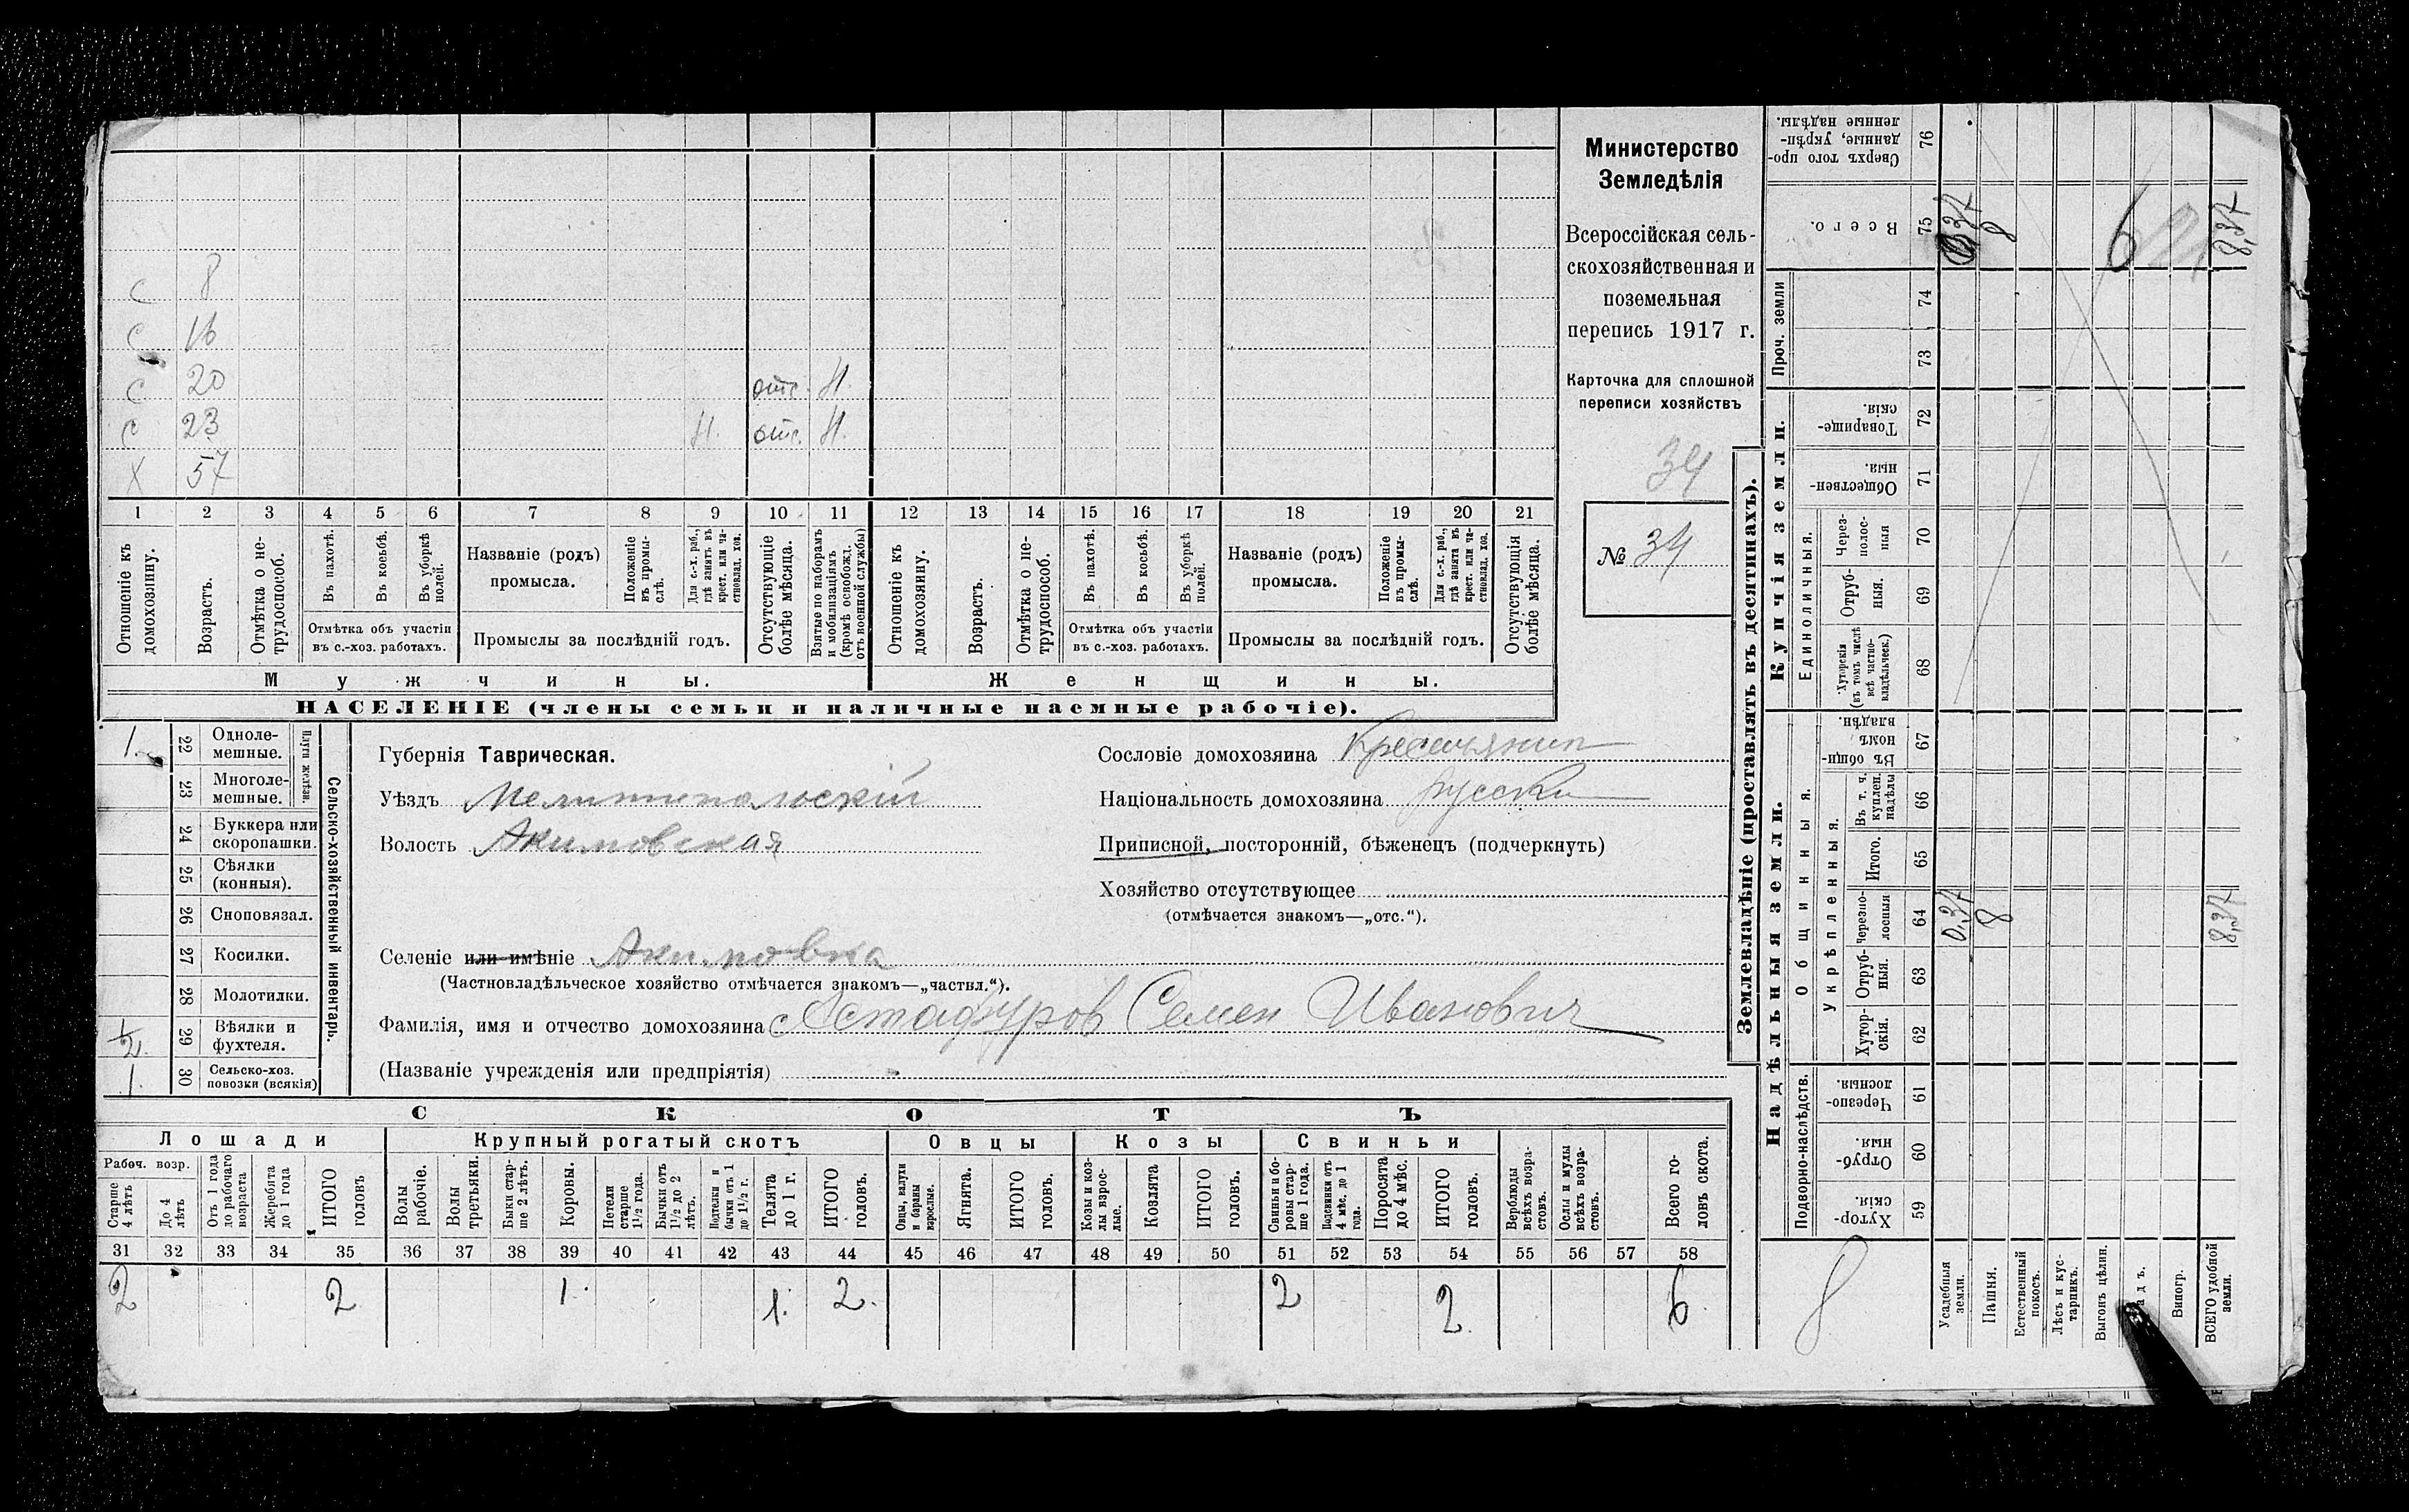 С 8
С 16
С 20 отс. Н.
С 23 Н. отс. Н.
Х 57
1 2 3 4 5 6 7 8 9 10 11 12 13 14 15 16 17 18 19 20 21
Отношеніе къ домохозяину.
Возрастъ.
Отмѣтка о нетрудоспособ.
Въ пахотѣ.
Въ косьбѣ.
Въ уборкѣ полей.
Отмѣтка объ участіи въ с.-хоз. работахъ.
Названіе (родъ) промысла.
Положеніе въ промыслѣ.
Для с.-х. раб., гдѣ занятъ въ крест. или частновлад. хоз.
Промыслы за послѣдній годъ.
Отсутствующіе болѣе мѣсяца.
Взятые по наборамъ и мобилизаціямъ (кромѣ освобожд. отъ военной службы)
Отношеніе къ домохозяину.
Возрастъ.
Отмѣтка о нетрудоспособ.
Въ пахотѣ.
Въ косьбѣ.
Въ уборкѣ полей.
Отмѣтка объ участіи въ с.-хоз. работахъ.
Названіе (родъ) промысла.
Положеніе въ промыслѣ.
Для с.-х. раб., гдѣ занята въ крест. или частновлад. хоз.
Промыслы за послѣдній годъ.
Отсутствующія болѣе мѣсяца.
Мужчины.
Женщины.
НАСЕЛЕНІЕ (члены семьи и наличные наемные рабочіе).
Министерство
Земледѣлія
Всероссійская сель-
скохозяйственная и
поземельная
перепись 1917 г.
Карточка для сплошной
переписи хозяйствъ
34
№ 34
1. 22 Однолемешные.
23 Многолемешные.
Плуги желѣзн.
24 Буккера или скоропашки.
25 Сѣялки (конныя).
26 Сноповязал.
27 Косилки.
28 Молотилки.
1/2. 29 Вѣялки и фухтеля.
1. 30 Сельско-хоз. повозки (всякія)
Сельско-хозяйственный инвентарь.
Губернія Таврическая.
Уѣздъ Мелитопольскій
Волость Акимовская
Селеніе или имѣніе Акимовка
(Частновладѣльческое хозяйство отмѣчается знакомъ—„частвл.“).
Фамилія, имя и отчество домохозяина Астафуров Семен Иванович
(Названіе учрежденія или предпріятія)
Сословіе домохозяина Крестьянин
Національность домохозяина русски
Приписной, посторонній, бѣженецъ (подчеркнуть)
Хозяйство отсутствующее
(отмѣчается знакомъ—„отс.“).
СКОТЪ
Лошади
Крупный рогатый скотъ
Овцы
Козы
Свиньи
Рабоч. возр.
Старше 4 лѣтъ
До 4 лѣтъ
Отъ 1 года до рабочаго возраста
Жеребята до 1 года
ИТОГО головъ
Волы рабочіе.
Волы третьяки.
Быки старше 2 лѣтъ.
Коровы.
Нетели старше 1½ года.
Бычки отъ 1½ до 2 лѣтъ.
Подтелки и бычки отъ 1 до 1½ г.
Телята до 1 г.
ИТОГО головъ.
Овцы, валухи и бараны взрослые.
Ягнята.
ИТОГО головъ.
Козы и козлы взрослые.
Козлята
ИТОГО головъ.
Свиньи и боровы старше 1 года.
Подсвинки отъ 4 мѣс. до 1 года.
Поросята до 4 мѣс.
ИТОГО головъ.
Верблюды всѣхъ возрастовъ.
Ослы и мулы всѣхъ возрастовъ.
Всего головъ скота.
31 32 33 34 35 36 37 38 39 40 41 42 43 44 45 46 47 48 49 50 51 52 53 54 55 56 57 58
2 2 1. 1. 2. 2 2 6
Землевладѣніе (проставлять въ десятинахъ).
Купчія земли.
Надѣльныя земли.
Сверхъ того проданные, укрѣпленные надѣлы. 76
Всего. 75 0,37 8 6 8,37
Проч. земли
74
73
Товарищескія. 72
Общественныя. 71
Единоличныя.
Черезполосныя 70
Отрубныя. 69
Хуторскія (въ томъ числѣ всѣ частновладѣльческ.) 68
Общинныя.
Въ общинномъ владѣн. 67
Укрѣпленныя.
Въ т. ч. куплен. надѣлы 66
Итого. 65
Черезполосныя 64 0,37 8 8,37
Отрубныя. 63
Хуторскія. 62
Подворно-наслѣдств.
Черезполосныя. 61
Отрубныя. 60
Хуторскія. 59
8
Усадебныя земли.
Пашня.
Естественный покосъ.
Лѣсъ и кустарникъ.
Выгонъ цѣлин.
Виногр.
ВСЕГО удобной земли.